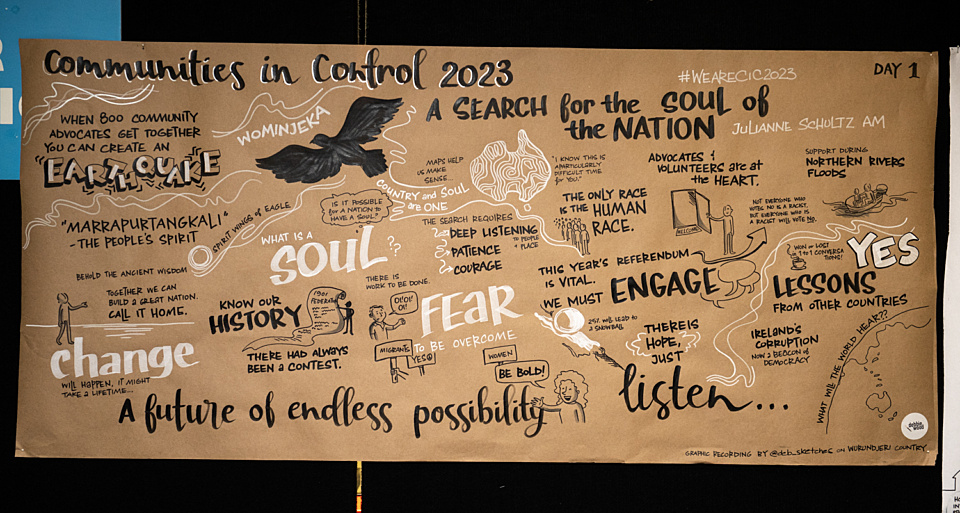 Communities in Control 2023
#WEARECIC2023
DAY 1
A SEARCH for the SOUL of
the NATION
JULIANNE SCHULTZ AM
WHEN 800 COMMUNITY
ADVOCATES GET TOGETHER
YOU CAN CREATE AN
"EARTHQUAKE"
WOMINJEKA
"MARRAPURTANGKALI"
-THE PEOPLE'S SPIRIT
SPIRIT WINGS of EAGLE
BEHOLD THE ANCIENT WISDOM
TOGETHER WE CAN
BUILD A GREAT NATION.
CALL IT HOME.
change
WILL HAPPEN, IT MIGHT
TAKE A LIFETIME...
IS IT POSSIBLE
for A NATION to
HAVE A SOUL?
WHAT IS A
SOUL??
KNOW OUR
HISTORY
1901
FEDERATION
THERE HAD ALWAYS
BEEN A CONTEST.
MAPS HELP
US MAKE
SENSE...
COUNTRY and SOUL
are ONE
THE SEARCH REQUIRES
DEEP LISTENING
TO PEOPLE
& PLACE
PATIENCE
COURAGE
THERE IS
WORK TO BE DONE.
OI! OI!
OI!
FEAR
TO BE OVERCOME
MIGRANTS
YES
WOMEN
BE BOLD!
"I KNOW THIS IS
A PARTICULARLY
DIFFICULT TIME
for YOU."
THE ONLY RACE
IS THE HUMAN
RACE.
ADVOCATES &
VOLUNTEERS are at
the HEART.
WELCOME
THIS YEAR'S REFERENDUM
IS VITAL.
WE MUST ENGAGE
25% WILL LEAD to
A SNOWBALL
THERE IS
HOPE,
JUST
listen...
SUPPORT DURING
NORTHERN RIVERS
FLOODS
NOT EVERYONE WHO
VOTES NO IS A RACIST,
BUT EVERYONE WHO IS
A RACIST WILL VOTE NO.
WON or LOST
1 to 1 CONVERSA
TIONS!
YES
LESSONS
FROM OTHER COUNTRIES
IRELAND'S
CORRUPTION
NOW A BEACON of
DEMOCRACY
WHAT WILL THE WORLD HEAR??
A future of endless possibility
debbie
wood
GRAPHIC RECORDING BY @deb_sketches on WURUNDJERI COUNTRY